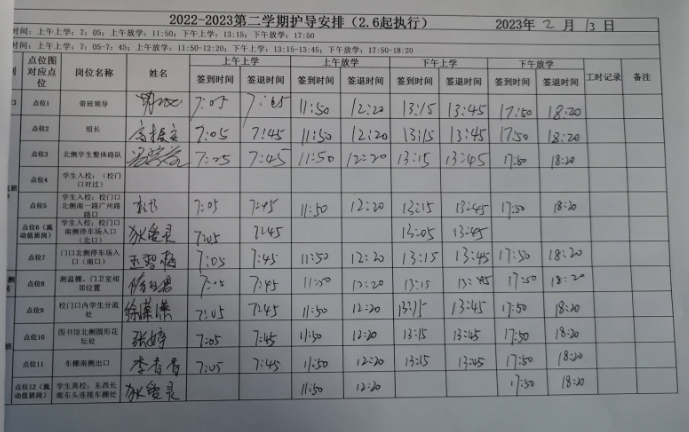 2022-2023第二学期护导安排（2.6起执行） 2023年 2 月 13 日
时间：上午上学：7：05；上午放学：11:50；下午上学：13:15；下午放学：17:50
时间：7:05-7：45；上午放学：11:50-12:20；下午上学：13:15-13:45；下午放学：17:50-18:20
点位图对应点位 岗位名称 姓名 上午上学 上午放学 下午上学 下午放学 工时记录 备注
签到时间 签退时间 签到时间 签退时间 签到时间 签退时间 签到时间 签退时间
点位1 带班领导 7:05 7:45 11:50 12:20 13:15 13:45 17:50 18:20
点位2 组长 7:05 7:45 11:50 12:20 13:15 13:45 17:50 18:20
点位3 北侧学生整体路队 7:05 7:45 11:50 12:20 13:15 13:45 17:50 18:20
点位4 学生入校：（校门口对过）
点位5 学生入校：校门口北侧南一路广州路路口 7:05 7:45 11:50 12:20 13:15 13:45 17:50 18:20
点位6（流动值班岗） 学生入校：校门口南侧停车场入口（北口） 7:05 7:45 13:05 13:45
点位7 门口北侧停车场入口（南口） 7:05 7:45 11:50 12:20 13:15 13:45 17:50 18:20
点位8 测温棚、门卫室相邻位置 7:05 7:45 11:50 12:20 13:15 13:45 17:50 18:20
点位9 校门口内学生分流处 徐潇潇 7:05 7:45 11:50 12:20 13:15 13:45 17:50 18:20
点位10 图书馆北侧圆形花坛处 张婷 7:05 7:45 11:50 12:20 13:15 13:45 17:50 18:20
点位11 车棚南侧出口 李青青 7:05 7:45 11:50 12:20 13:15 13:45 17:50 18:20
点位12（流动值班岗） 学生离校：东西长廊东头连接车棚处 11:50 12:20 17:50 18:20